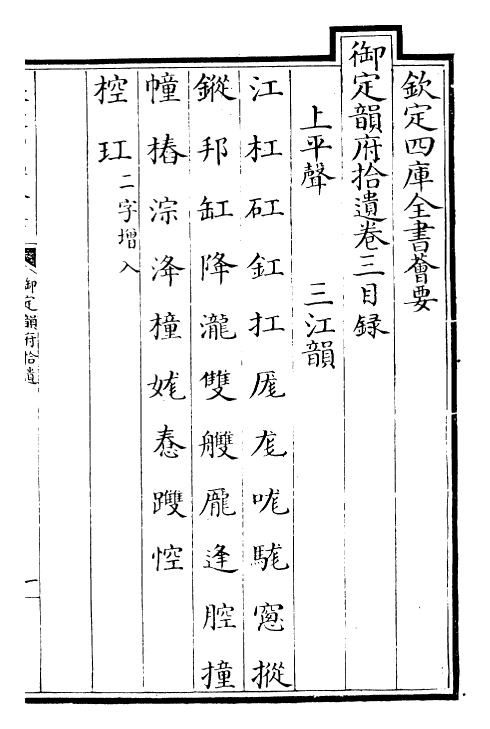 欽定四庫全書薈要
御定韻府拾遺卷三目録
上平聲 三江韻
江杠矼釭扛厖尨哤駹窻摐
鏦邦缸降瀧雙艭龎逢腔撞
幢樁淙洚橦娏惷躞悾
椌玒二字增入
御定韻府拾遺
一